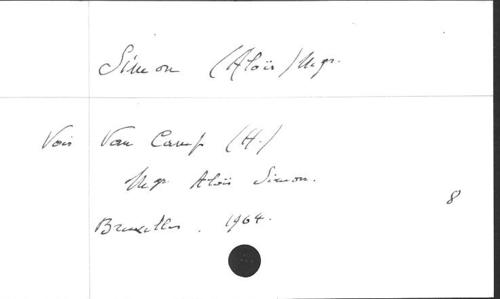 Simon (Aloïs) Mgr.
Voir Van Camp (H.)
Mgr Aloïs Simon.
8
Bruxelles. 1964.